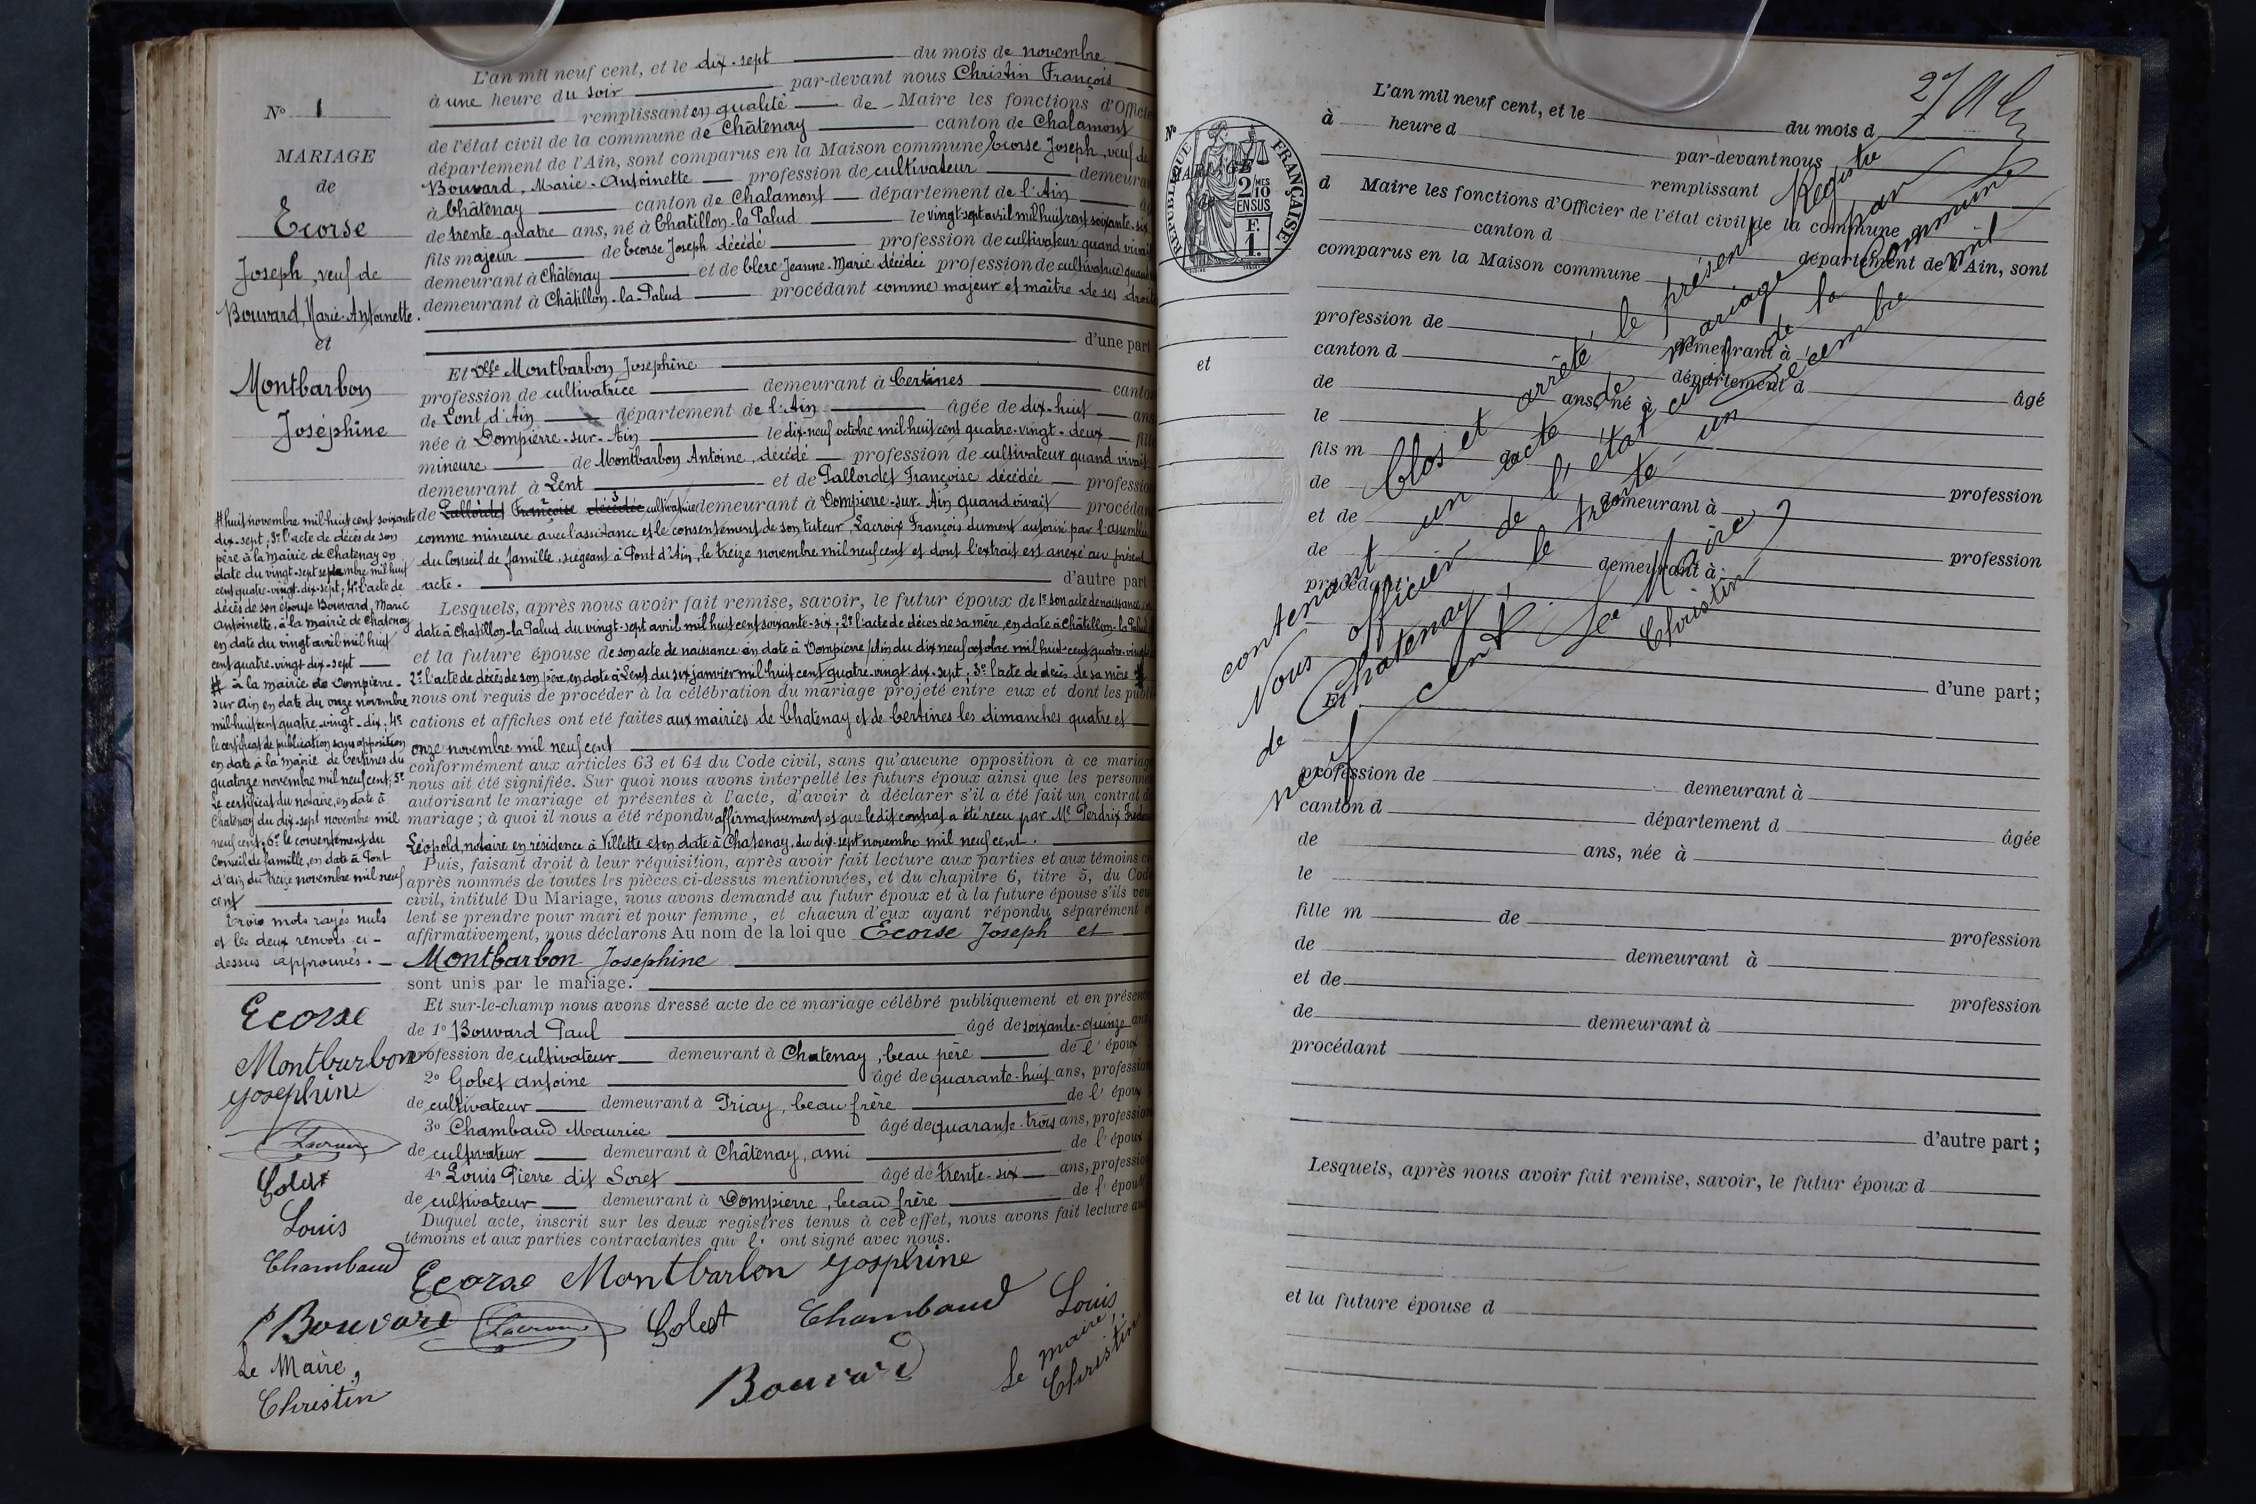 L'an mil neuf cent, et le dix-sept du mois de novembre
à une heure du soir par-devant nous Christin François
remplissant en qualité de Maire les fonctions d'Officie
de l'état civil de la commune de Châtenay canton de Chalamont
département de l'Ain, sont comparus en la Maison commune Ecorse Joseph, veuf de
Bouvard, Marie-Antoinette profession de cultivateur demeuran
à Châtenay canton de Chalamont département de l'Ain
de trente quatre ans, né à Chatillon-la-Palud le vingt-sept avril mil huit cent soixante-six
fils majeur de Ecorse Joseph décédé profession de cultivateur quand vivait
demeurant à Châtenay et de Clerc Jeanne-Marie décédée profession de cultivatrice quand
demeurant à Châtillon-la-Palud procédant comme majeur et maître de ses droits
d'une part
Et Delle Montbarbon Joséphine
profession de cultivatrice demeurant à Certines canton
de Pont d'Ain département de l'Ain âgée de dix-huit ans
née à Dompierre-sur-Ain le dix-neuf octobre mil huit cent quatre-vingt-deux fille
mineure de Montbarbon Antoine, décédé profession de cultivateur quand vivait
demeurant à Lent et de Pallordet Françoise décédée profession
de Pallordet Françoise décédée cultivatrice demeurant à Dompierre-sur-Ain quand vivait procédan
comme mineure avec l'assistance et le consentement de son tuteur Lacroix François dument autorisé par l'assemblée
du Conseil de famille, siégeant à Pont d'Ain, le treize novembre mil neuf cent et dont l'extrait est anexé au présent
acte. d'autre part
Lesquels, après nous avoir fait remise, savoir, le futur époux de 1° son acte de naissance en
date à Chatillon-la-Palud du vingt-sept avril mil huit cent soixante-six; 2° l'acte de décès de sa mère, en date à Châtillon-la-Palud
et la future épouse de son acte de naissance en date à Dompierre s/Ain du dix neuf octobre mil huit cent quatre-vingt
2° l'acte de décès de son père, en date à Lent du six janvier mil-huit cent quatre-vingt dix-sept; 3° l'acte de décès de sa mère #
nous ont requis de procéder à la célébration du mariage projeté entre eux et dont les publi
cations et affiches ont eté faites aux mairies de Chatenay et de Certines les dimanches quatre et
onze novembre mil neuf cent
conformément aux articles 63 et 64 du Code civil, sans qu'aucune opposition à ce mariag
nous ait été signifiée. Sur quoi nous avons interpellé les futurs époux ainsi que les personne
autorisant le mariage et présentes à l'acte, d'avoir à déclarer s'il a été fait un contrat de
mariage; à quoi il nous a été répondu affirmativement et que le dit contrat a été reçu par Me Perdrix
Léopold, notaire en résidence à Villette et en date à Chatenay, du dix-sept novembre mil neuf cent.
Puis, faisant droit à leur réquisition, après avoir fait lecture aux parties et aux témoins ci
après nommés de toutes les pièces ci-dessus mentionnées, et du chapitre 6, titre 5, du Code
civil, intitulé Du Mariage, nous avons demandé au futur époux et à la future épouse s'ils veu
lent se prendre pour mari et pour femme, et chacun d'eux ayant répondu séparément e
affirmativement, nous déclarons Au nom de la loi que Ecorse Joseph et
Montbarbon Josephine
sont unis par le mariage.
Et sur-le-champ nous avons dressé acte de ce mariage célébré publiquement et en présence
de 1° Bouvard Paul âgé de soixante-quinze ans
profession de cultivateur demeurant à Chatenay, beau père de l'époux
2° Gobet Antoine âgé de quarante-huit ans, profession
de cultivateur demeurant à Priay, beau frère de l'époux
3° Chambaud Maurice âgé de quarante-trois ans, profession
de cultivateur demeurant à Châtenay, ami de l'époux
4° Louis Pierre dit Soret âgé de trente-six ans, profession
de cultivateur demeurant à Dompierre, beau frère de l'époux
Duquel acte, inscrit sur les deux registres tenus à cet effet, nous avons fait lecture aux
témoins et aux parties contractantes qui ont signé avec nous.
Ecorse Montbarbon Yosphine
Lacroix Gobet Chambaud Louis
Bouvard
Le maire,
Christin
N° 1
MARIAGE
de
Ecorse
Joseph, veuf de
Bouvard, Marie-Antoinette.
et
Montbarbon
Joséphine
# huit novembre mil huit cent soixante
dix-sept; 3° l'acte de décès de son
père à la mairie de Chatenay en
date du vingt-sept septembre mil huit
cent quatre-vingt-dix-sept; 4° l'acte de
décès de son épouse Bouvard, Marie
Antoinette, à la mairie de Chatenay
en date du vingt avril mil huit
cent quatre-vingt dix-sept
# à la mairie de Dompierre-
sur Ain en date du onze novembre
mil-huit cent quatre-vingt-dix; 4°
le certificat de publication sans opposition
en date à la mairie de Certines du
quatorze novembre mil neuf cent; 5°
Le certificat du notaire, en date à
Chatenay du dix-sept novembre mil
neuf cent; 6° le consentement du
Conseil de famille, en date à Pont
d'Ain du treize novembre mil neuf
cent
Trois mots rayés nuls
et les deux renvois ci-
dessus approuvés.
Ecorse
Montburbon
Yosephine
Lacroix
Gobet
Louis
Chambaud
P Bouvard
Le Maire,
Christin
N°
RÉPUBLIQUE FRANÇAISE
MARIAGE
2/10 MES
EN SUS
F.
1.
et
L'an mil neuf cent, et le du mois d
à heure d par-devant nous
remplissant
d Maire les fonctions d'Officier de l'état civil de la commune
canton d département de l'Ain, sont
comparus en la Maison commune
profession de demeurant à
canton d département d
de ans, né à âgé
le
fils m de
de demeurant à profession
et de
de demeurant à profession
procédant
d'une part;
Et
profession de demeurant à
canton d département d
de ans, née à âgée
le
fille m de
de demeurant à profession
et de
de demeurant à profession
procédant
d'autre part;
Lesquels, après nous avoir fait remise, savoir, le futur époux d
et la future épouse d
Clos et arrêté le présent Registre
contenant un acte de mariage par
Nous officier de l'état civil de la Commune
de Chatenay, le trente un décembre mil
neuf cent.
Le Maire,
Christin